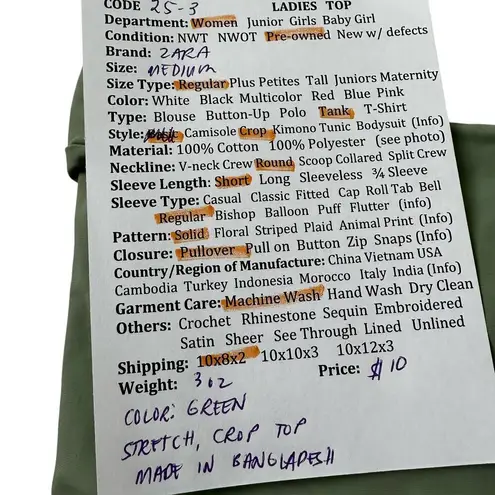 CODE 25-3 LADIES TOP
Department: Women Junior Girls Baby Girl
Condition: NWT NWOT Pre-owned New w/ defects
Brand: ZARA
Size: MEDIUM
Size Type: Regular Plus Petites Tall Juniors Maternity
Color: White Black Multicolor Red Blue Pink
Type: Blouse Button-Up Polo Tank T-Shirt
Style: Camisole Crop Kimono Tunic Bodysuit (Info)
Material: 100% Cotton 100% Polyester (see photo)
Neckline: V-neck Crew Round Scoop Collared Split Crew
Sleeve Length: Short Long Sleeveless ¾ Sleeve
Sleeve Type: Casual Classic Fitted Cap Roll Tab Bell
Regular Bishop Balloon Puff Flutter (info)
Pattern: Solid Floral Striped Plaid Animal Print (Info)
Closure: Pullover Pull on Button Zip Snaps (Info)
Country/Region of Manufacture: China Vietnam USA
Cambodia Turkey Indonesia Morocco Italy India (Info)
Garment Care: Machine Wash Hand Wash Dry Clean
Others: Crochet Rhinestone Sequin Embroidered
Satin Sheer See Through Lined Unlined
Shipping: 10x8x2 10x10x3 10x12x3
Weight: 3oz Price: $10
COLOR: GREEN
STRETCH, CROP TOP
MADE IN BANGLADESH